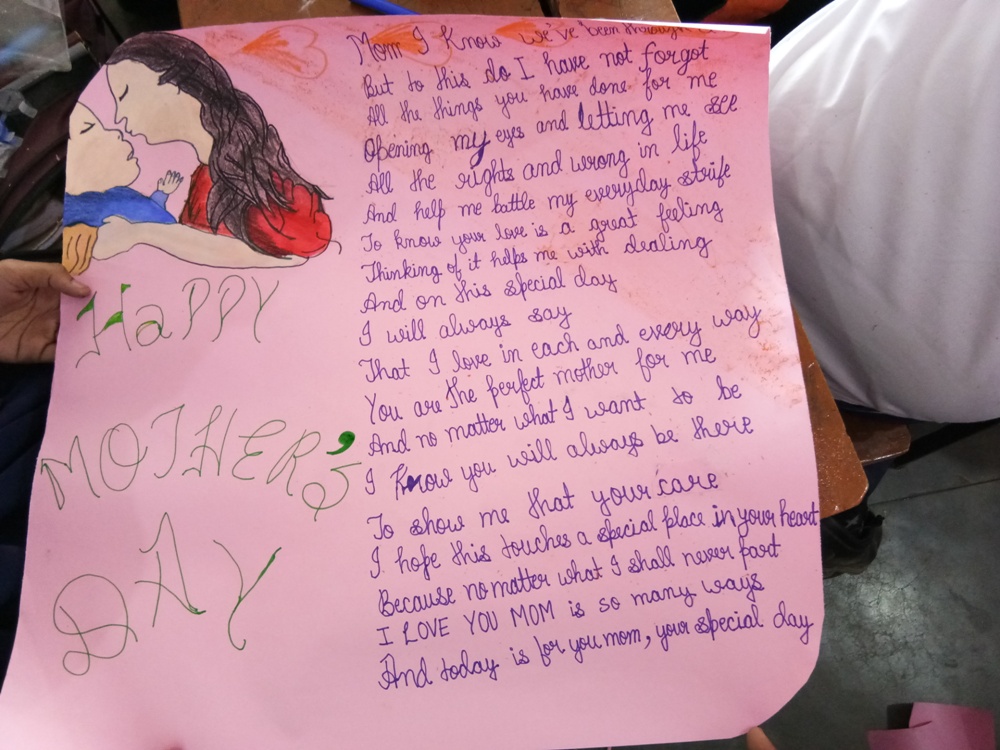 HaPPY
MOTHER'S
DAY
Mom I Know we've been through
But to this do I have not forgot
All the things you have done for me
Opening my eyes and letting me see
All the rights and wrong in life
And help me battle my everyday strife
To know your love is a great feeling
Thinking of it helps me with dealing
And on this special day
I will always say
That I love in each and every way
You are the perfect mother for me
And no matter what I want to be
I Know you will always be there
To show me that your care
I hope this touches a special place in your heart
Because no matter what I shall never part
I LOVE YOU MOM is so many ways
And today is for you mom, your special day